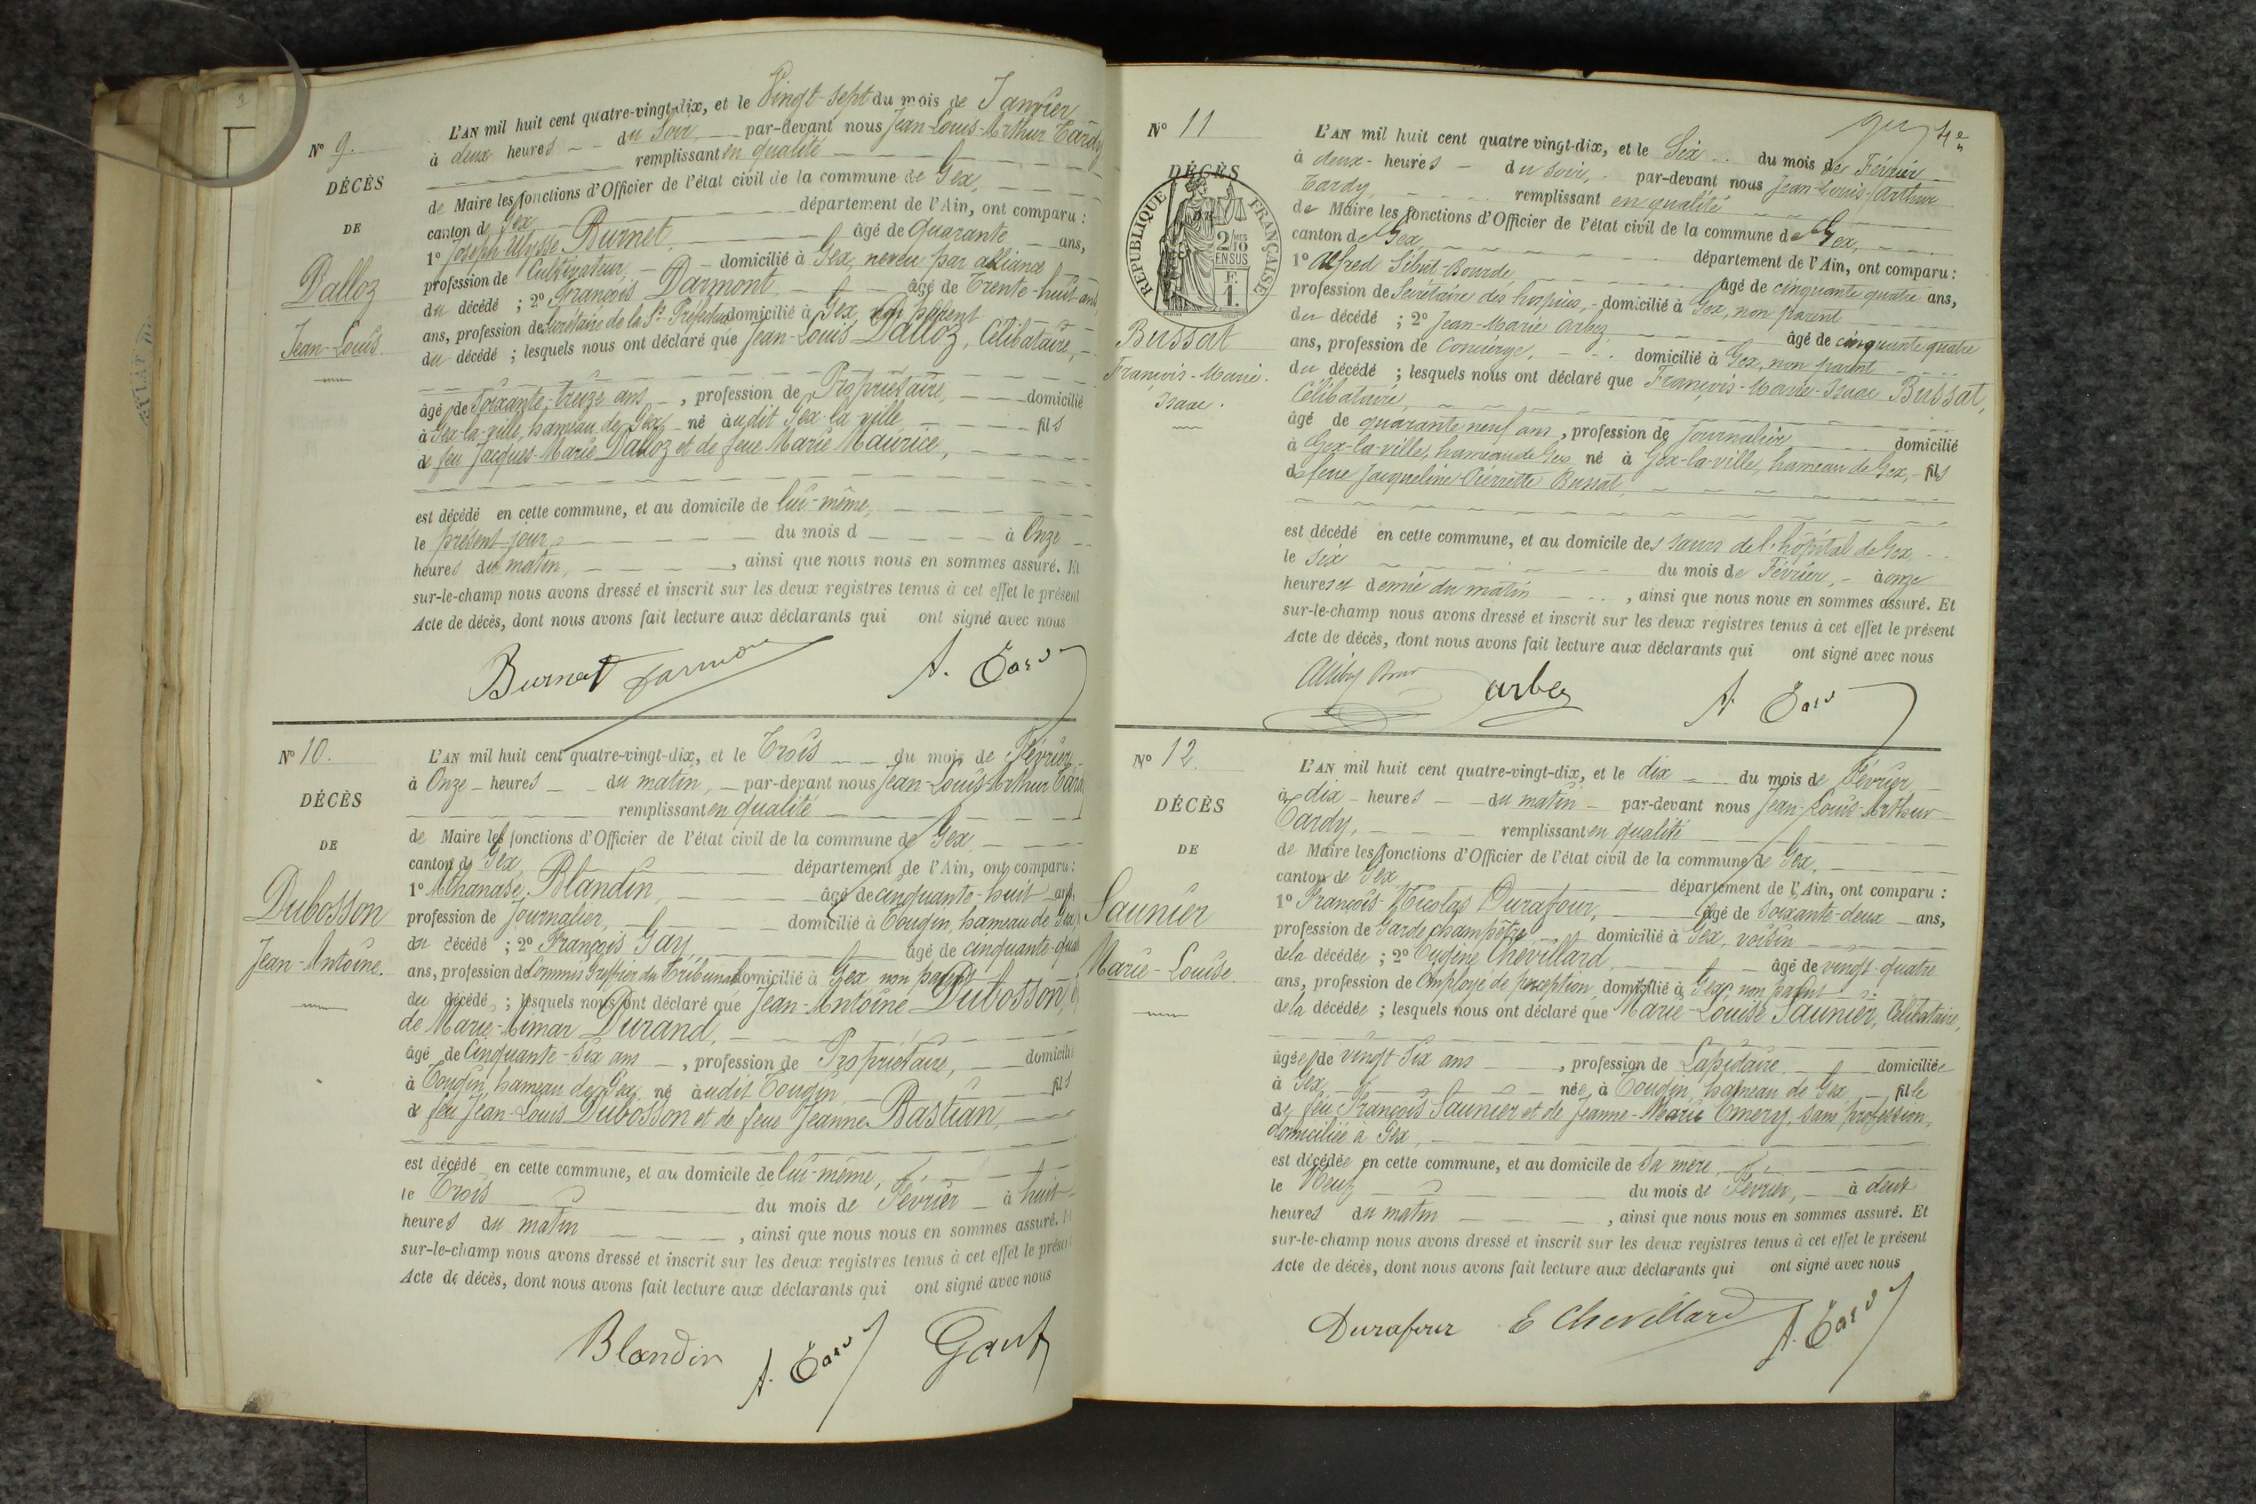 Nº 9.
DÉCÈS
DE
Dalloz
Jean-Louis.
L'AN mil huit cent quatre-vingt-dix, et le Vingt-sept du mois de Janvier
à deux heures du Soir par-devant nous Jean-Louis-Arthur Tardy
remplissant en qualité
de Maire les fonctions d'Officier de l'état civil de la commune de Gex,
canton de Gex département de l'Ain, ont comparu :
1º Joseph Ulysse Burnet, âgé de quarante ans,
profession de Cultivateur, domicilié à Gex, neveu par alliance
du décédé ; 2º François Darmont âgé de Trente-huit ans
ans, profession de Secrétaire de la Ss-Préfecture domicilié à Gex, non parent
du décédé ; lesquels nous ont déclaré que Jean-Louis Dalloz, Célibataire,
âgé de soixante-treize ans, profession de Propriétaire, domicilié
à Gex-la-ville, hameau de Gex, né audit Gex-la-ville fils
de feu Jacques-Marie Dalloz et de feue Marie Maurice,
est décédé en cette commune, et au domicile de lui-même,
le présent jour, du mois d à Onze
heures du matin, , ainsi que nous nous en sommes assuré. Et
sur-le-champ nous avons dressé et inscrit sur les deux registres tenus à cet effet le présent
Acte de décès, dont nous avons fait lecture aux déclarants qui ont signé avec nous
Burnet Darmont A. Tardy
Nº 10.
DÉCÈS
DE
Dubosson
Jean-Antoine.
L'AN mil huit cent quatre-vingt-dix, et le Trois du mois de Février
à Onze heures du matin, par-devant nous Jean-Louis-Arthur Tardy
remplissant en qualité
de Maire les fonctions d'Officier de l'état civil de la commune de Gex
canton de Gex département de l'Ain, ont comparu :
1º Athanase Blandin âgé de cinquante-huit ans,
profession de Journalier, domicilié à Tougin, hameau de Gex,
du décédé ; 2º François Gay âgé de cinquante-quatre
ans, profession de Commis Greffier du Tribunal domicilié à Gex non parent
du décédé ; lesquels nous ont déclaré que Jean-Antoine Dubosson,
de Marie-Aimar Durand,
âgé de Cinquante-six ans, profession de Propriétaire, domicilié
à Tougin, hameau de Gex, né audit Tougin fils
de feu Jean-Louis Dubosson et de feue Jeanne Bastian,
est décédé en cette commune, et au domicile de lui-même,
le Trois du mois de Février à huit
heures du matin , ainsi que nous nous en sommes assuré. Et
sur-le-champ nous avons dressé et inscrit sur les deux registres tenus à cet effet le présent
Acte de décès, dont nous avons fait lecture aux déclarants qui ont signé avec nous
Blandin A. Tardy Gay
Nº 11
DÉCÈS
DE
RÉPUBLIQUE FRANÇAISE
2/10
EN SUS
F.
1.
Bussat
François-Marie-
Isaac.
L'AN mil huit cent quatre vingt-dix, et le Six du mois de Février
à deux heures du soir, par-devant nous Jean-Louis-Arthur
Tardy, remplissant en qualité
de Maire les fonctions d'Officier de l'état civil de la commune de Gex,
canton de Gex, département de l'Ain, ont comparu :
1º Alfred Sibut-Bourde âgé de cinquante quatre ans,
profession de Secrétaire des hospices, domicilié à Gex, non parent
du décédé ; 2º Jean-Marie Arbez âgé de cinquante quatre
ans, profession de Concierge, domicilié à Gex, non parent
du décédé ; lesquels nous ont déclaré que François-Marie-Isaac Bussat,
Célibataire,
âgé de quarante neuf ans, profession de Journalier domicilié
à Gex-la-ville, hameau de Gex né à Gex-la-ville, hameau de Gex, fils
de feue Jacqueline Pierrette Bussat,
est décédé en cette commune, et au domicile des sœurs de l'hôpital de Gex
le six du mois de Février, à onze
heures et demie du matin , ainsi que nous nous en sommes assuré. Et
sur-le-champ nous avons dressé et inscrit sur les deux registres tenus à cet effet le présent
Acte de décès, dont nous avons fait lecture aux déclarants qui ont signé avec nous
Arbez A. Tardy
Nº 12.
DÉCÈS
DE
Saunier
Marie-Louise.
L'AN mil huit cent quatre-vingt-dix, et le dix du mois de Février
à dix heures du matin par-devant nous Jean-Louis-Arthur
Tardy, remplissant en qualité
de Maire les fonctions d'Officier de l'état civil de la commune de Gex,
canton de Gex département de l'Ain, ont comparu :
1º François-Nicolas Durafour, âgé de soixante-deux ans,
profession de Garde champêtre domicilié à Gex, voisin
de la décédée ; 2º Eugène Chevillard âgé de vingt-quatre
ans, profession de Employé de perception, domicilié à Gex, non parent
de la décédée ; lesquels nous ont déclaré que Marie-Louise Saunier, Célibataire,
âgée de vingt six ans , profession de Lapidaire domiciliée
à Gex née à Tougin, hameau de Gex fille
de feu François Saunier et de Jeanne-Marie Emery, sans profession,
domiciliée à Gex,
est décédée en cette commune, et au domicile de sa mère
le Neuf du mois de Février, à deux
heures du matin , ainsi que nous nous en sommes assuré. Et
sur-le-champ nous avons dressé et inscrit sur les deux registres tenus à cet effet le présent
Acte de décès, dont nous avons fait lecture aux déclarants qui ont signé avec nous
Durafour E Chevillard A. Tardy